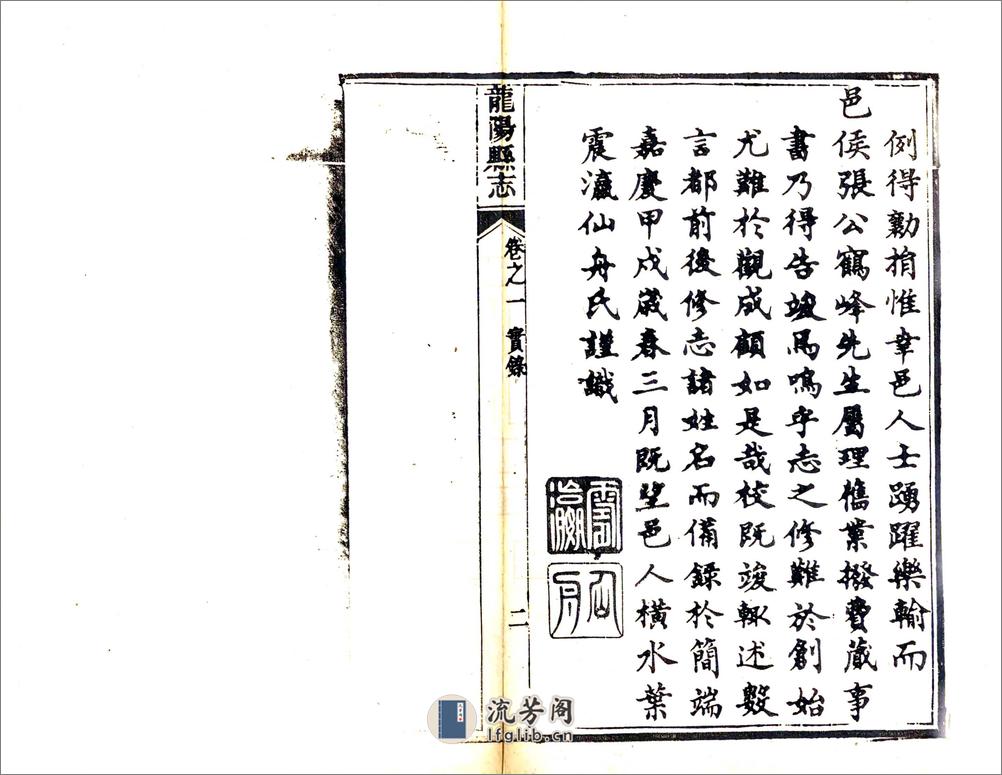 例得勸捐惟幸邑人士踴躍樂輸而
邑侯張公鶴峰先生屬理舊業撥費蕆事
書乃得告竣焉嗚乎志之修難於創始
尤難於觀成顧如是哉校既竣輒述數
言都前後修志諸姓名而備錄於簡端
嘉慶甲戌歲春三月既望邑人橫水葉
震瀛仙舟氏謹識
仙舟
龍陽縣志
卷之一 實錄
二
流芳阁
lfglib.cn